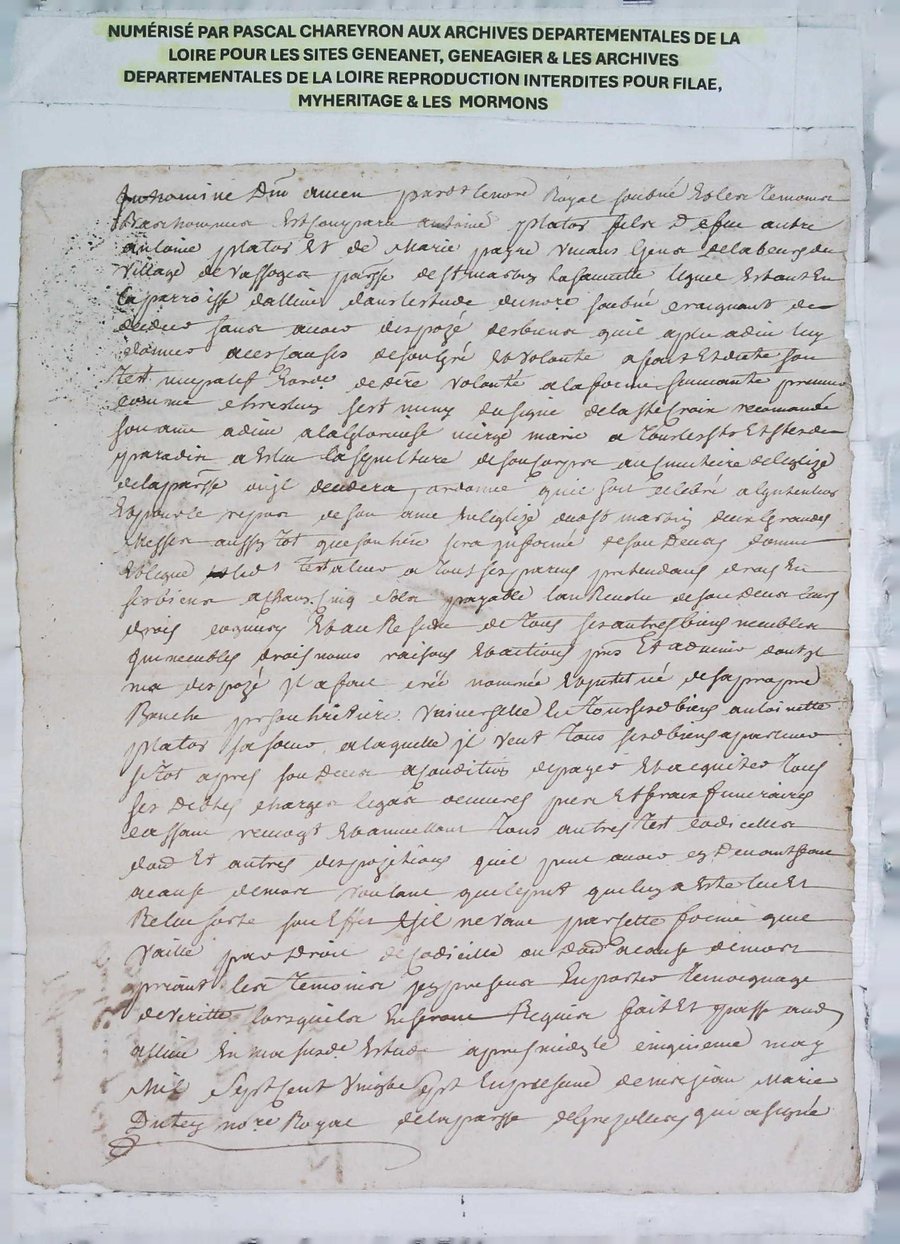 NUMÉRISÉ PAR PASCAL CHAREYRON AUX ARCHIVES DEPARTEMENTALES DE LA
LOIRE POUR LES SITES GENEANET, GENEAGIER & LES ARCHIVES
DEPARTEMENTALES DE LA LOIRE REPRODUCTION INTERDITES POUR FILAE,
MYHERITAGE & LES MORMONS
In nomine Dni amen pardt notre Royal soubné et les temoins
bas nommes Est comparu antoine platos fils defeu autre
antoine platos Et de Marie payre vivans Gens de labeurs du
village de vassoges parsse de st marcin La sauvette lequel Estant En
la parroisse dallieu dans lestude du nore soubné craignant de
deceder sans avoir dispozé des biens quil a pleu a dieu luy
donner a ces causes de son gré et volonté a fait Et dicté son
test nuncupatif et ordce de dere volonté a la forme suivante premier
comme chrestien sest muny du signe de la ste Croix recomandé
son ame a dieu a la glorieuse vierge marie a tous les sts Et stes de
paradis a Eslu la sepulture de son corps au cimetiere de leglize
de la parsse ou il decedera, ordonne quil soit celebré a lintention
Et pour le repos de son ame En leglize dud st marcin deux Grandes
Messes aussytot que son here sera informé de son Deces donne
Et legue led testateur a tous ses parens pretendans drois En
ses biens a chacun cinq sols payable lan Revolu de son deces
drois acquis Et au Residu de tous ses autres biens meubles
immeubles drois noms raisons Et actions pnts Et advenir dont il
na dispozé jl a fait créé nommée Et instituée de sa propre
Bouche pr son heritiere universelle En tous ses biens antoinette
platos sa soeur a laquelle jl veut tous ses biens apartenir
sitot apres son deces a condition de payer Et acquiter tous
ses debtes charges legats oeuvres pies Et frais funeraires
cassant revoqt Et annullant tous autres test codicilles
dons Et autres dispozitions quil peut avoir cy devant faits
a cause de mort voulant que le pnt qui luy a Este leu Et
Releu sorte son Effet Et sil ne vaut par cette forme que
vaille par droit de codicille ou don a cause de mort
priant les temoins icy presens En porter temoignage
de veritté lorsquils En seront Requis fait Et passé aud
allieu En ma susde Estude apres midy le cinquieme may
Mil sept cent vingt sept En presence de mr jean Marie
nore Royal de la parsse de Grezolles qui a signé